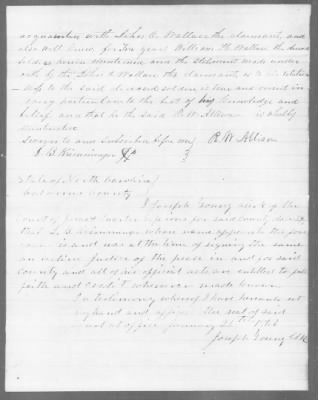 acquainted with John A Wallace the claimant, and
also well knew for ten years William H Wallace the dece
soldier herein mentioned and the statement made under
oath by the John A Wallace the claimant, as to his relation
ship to the said deceased soldier is true and correct in
every particular to the best of his knowledge and
belief and that he the said R. W. Allison is wholly
disinterested
Sworn to and subscribed before me } R. W. Allison
J. P.
State of North Carolina }
Cabarrus County }
I Joseph Young clerk of the
Court of pleas & quarter sessions for said county do certify
that whose name appears to the fore
is and was at the time of signing the same
an acting Justice of the peace in and for said
County and all of his official acts are entitled to full
faith and credit wherever made known
In testimony whereof I have hereunto set
my hand and affixed the seal of said
at office January
Joseph Young Clk